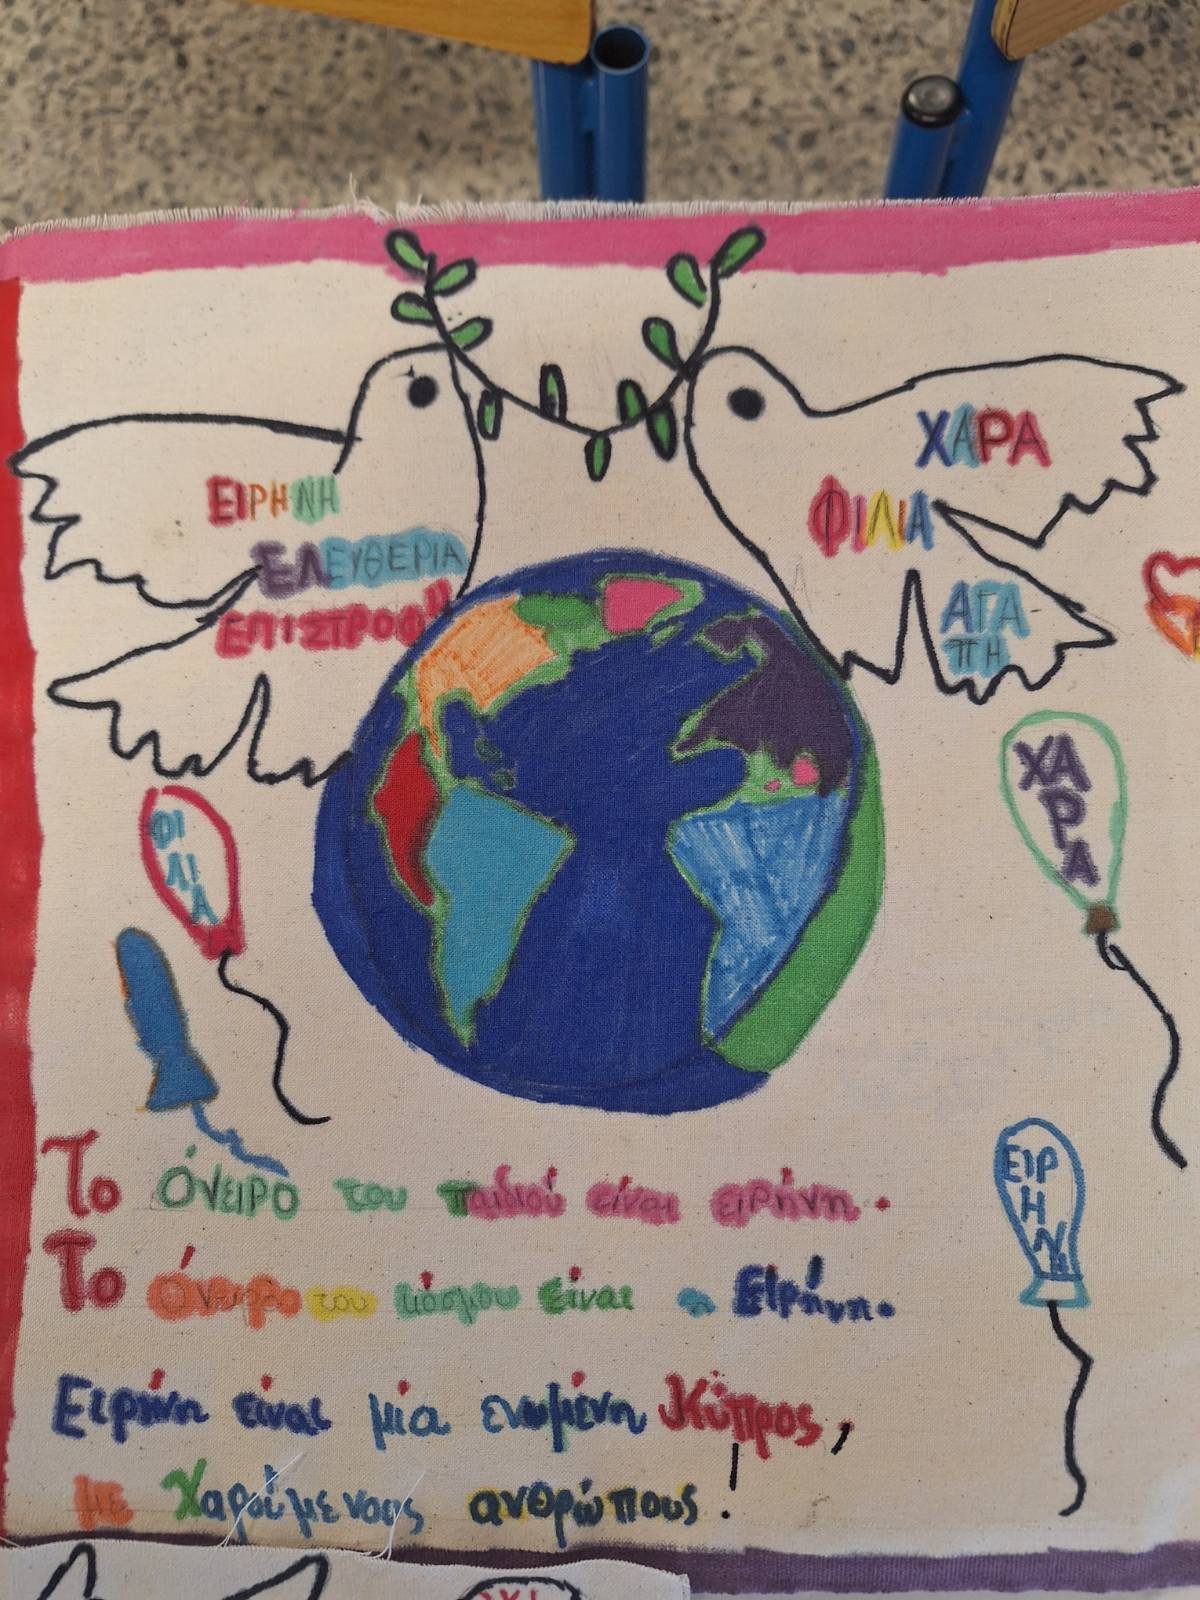 ΕΙΡΗΝΗ
ΕΛΕΥΘΕΡΙΑ
ΕΠΙΣΤΡΟΦΗ
ΧΑΡΑ
ΦΙΛΙΑ
ΑΓΑ
ΠΗ
ΦΙ
ΛΙ
Α
ΧΑ
Ρ
Α
ΕΙΡ
Η
ΝΗ
Το όνειρο του παιδιού είναι ειρήνη.
Το όνειρο του κόσμου είναι η Ειρήνη.
Ειρήνη είναι μία ενωμένη Κύπρος,
με χαρούμενους ανθρώπους!